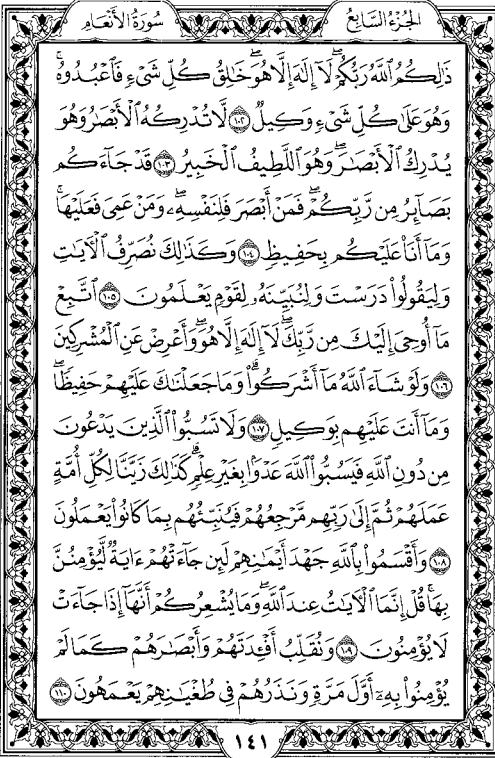 سُورَةُ الأَنْعَامِ الجُزْءُ السَّابِعُ
ذَٰلِكُمُ ٱللَّهُ رَبُّكُمْ ۖ لَآ إِلَٰهَ إِلَّا هُوَ ۖ خَٰلِقُ كُلِّ شَىْءٍ فَٱعْبُدُوهُ ۚ
وَهُوَ عَلَىٰ كُلِّ شَىْءٍ وَكِيلٌ ١٠٢ لَّا تُدْرِكُهُ ٱلْأَبْصَٰرُ وَهُوَ
يُدْرِكُ ٱلْأَبْصَٰرَ ۖ وَهُوَ ٱللَّطِيفُ ٱلْخَبِيرُ ١٠٣ قَدْ جَآءَكُم
بَصَآئِرُ مِن رَّبِّكُمْ ۖ فَمَنْ أَبْصَرَ فَلِنَفْسِهِۦ ۖ وَمَنْ عَمِىَ فَعَلَيْهَا ۚ
وَمَآ أَنَا۠ عَلَيْكُم بِحَفِيظٍ ١٠٤ وَكَذَٰلِكَ نُصَرِّفُ ٱلْـَٔايَٰتِ
وَلِيَقُولُوا۟ دَرَسْتَ وَلِنُبَيِّنَهُۥ لِقَوْمٍ يَعْلَمُونَ ١٠٥ ٱتَّبِعْ
مَآ أُوحِىَ إِلَيْكَ مِن رَّبِّكَ ۖ لَآ إِلَٰهَ إِلَّا هُوَ ۖ وَأَعْرِضْ عَنِ ٱلْمُشْرِكِينَ
١٠٦ وَلَوْ شَآءَ ٱللَّهُ مَآ أَشْرَكُوا۟ ۗ وَمَا جَعَلْنَٰكَ عَلَيْهِمْ حَفِيظًا ۖ
وَمَآ أَنتَ عَلَيْهِم بِوَكِيلٍ ١٠٧ وَلَا تَسُبُّوا۟ ٱلَّذِينَ يَدْعُونَ
مِن دُونِ ٱللَّهِ فَيَسُبُّوا۟ ٱللَّهَ عَدْوًۢا بِغَيْرِ عِلْمٍ ۗ كَذَٰلِكَ زَيَّنَّا لِكُلِّ أُمَّةٍ
عَمَلَهُمْ ثُمَّ إِلَىٰ رَبِّهِم مَّرْجِعُهُمْ فَيُنَبِّئُهُم بِمَا كَانُوا۟ يَعْمَلُونَ
١٠٨ وَأَقْسَمُوا۟ بِٱللَّهِ جَهْدَ أَيْمَٰنِهِمْ لَئِن جَآءَتْهُمْ ءَايَةٌ لَّيُؤْمِنُنَّ
بِهَا ۚ قُلْ إِنَّمَا ٱلْـَٔايَٰتُ عِندَ ٱللَّهِ ۖ وَمَا يُشْعِرُكُمْ أَنَّهَآ إِذَا جَآءَتْ
لَا يُؤْمِنُونَ ١٠٩ وَنُقَلِّبُ أَفْـِٔدَتَهُمْ وَأَبْصَٰرَهُمْ كَمَا لَمْ
يُؤْمِنُوا۟ بِهِۦٓ أَوَّلَ مَرَّةٍ وَنَذَرُهُمْ فِى طُغْيَٰنِهِمْ يَعْمَهُونَ ١١٠
١٤١